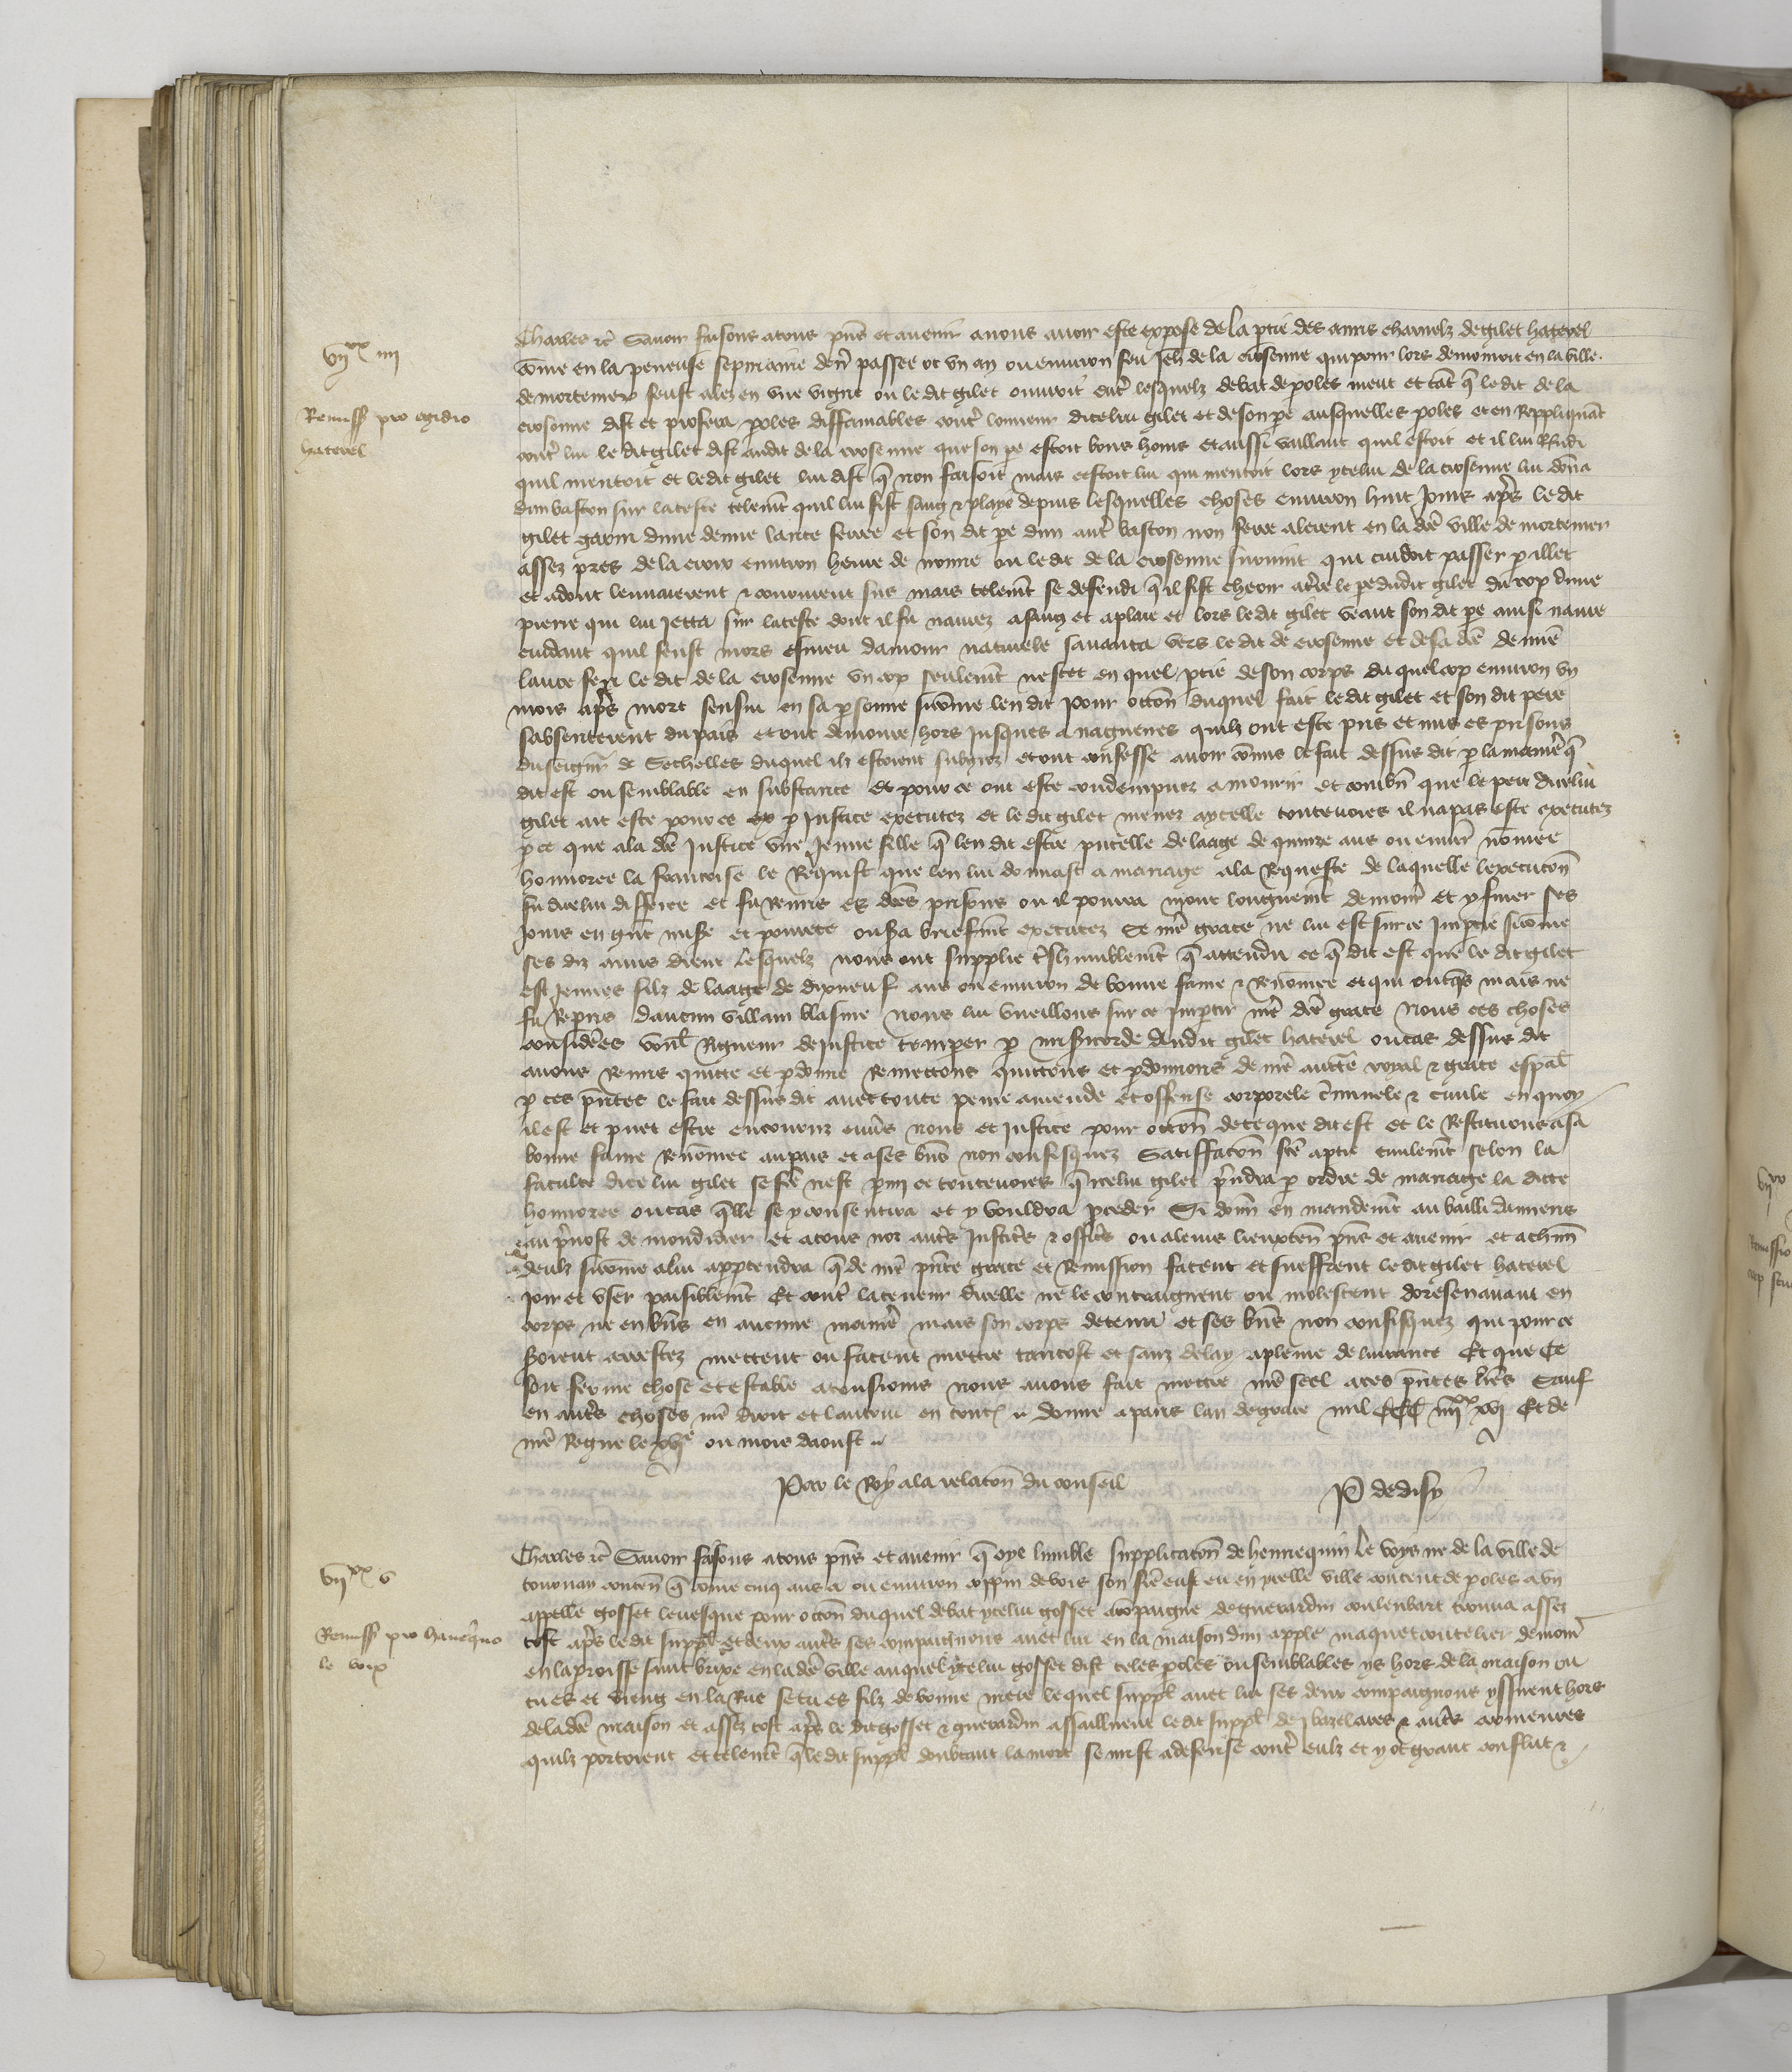 vijxx iiij
Remiss pro egidio
haterel
Charles etc Savoir faisons a tous pñs et avenir a nous avoir este expose de la ptie des amis charnelz de gilet haterel
cõme en la peneuse sepmaine derr̃ passee ot un an ou environ feu Jeh de la crosonne qui pour lors demouroit en la ville
de mortemer feust alez en une vigne ou le dit gilet ouvroit entr̃ lesquelz debat de poles meut et tãt q̃ le dit de la
crosonne dist et profera poles diffamables cont̃ lonneur dicelui gilet et de son pe ausquelles poles et en Repliquãt
cont̃ lui le dit gilet dist audit de la crosonne que son pe estoit bons homs et aussi vaillant quil estoit et il lui Rñdi
quil mentoit et le dit gilet lui dist q̃ non faisoit mais cestoit lui qui mentoit lors ycelui de la crosonne lui dõna
dun baston sur la teste telemt̃ quil lui fist sang & playe depuis lesquelles choses environ huit Jours ap̃s le dit
gilet garni dune demie lance ferree et son dit pe dun aut̃ baston non ferre alerent en la dc̃e ville de mortemer
assez pres de la croix environ heure de nonne ou le dit de la crosonne survint qui cuidoit passer p illec
et adont lenvairent & coururent sus mais telemt̃ se defendi q̃ il fist cheoir a t̃re le pe dudit gilet du cop dune
pierre qui lui jetta sur la teste dont il fu navrez a sang et a plaie et lors le dit gilet veant son dit pe ainsi navre
cuidant quil feust mors esmeu damour naturele savanca vers le dit de crosonne et de sa dc̃e demie
lance feri le dit de la crosonne un cop seulemt̃ ne scet en quel ptie de son corps du quel cop environ un
mois ap̃s mort sensui en sa psonne si cõme len dit Pour occõn duquel fait le dit gilet et son dit pere
sabsenterent du pais et ont demoure hors Jusques a nagueres quilz ont este pris et mis es prisons
du seignr̃ de Sechelles duquel ilz estoient subgiez et ont confesse avoir cõmis le fait dessus dit p la manier̃ q̃
dit est ou semblable en substance et pour ce ont este condempnez a mourir et combn̄ que le pere dicelui
gilet ait este pour ce p Justice executez et le dit gilet menez a ycelle toutevoies il na pas este executez
p ce que a la dc̃e Justice une Jeune fille q̃ len dit estre pucelle de laage de quinze ans ou envir̃ nõmee
honnoree la francoise le Requist que len lui donnast a mariage a la Requeste de laquelle lexecucõn
fu dicelui differee et fu Remis es dc̃es prisons ou il pourra mout longuemt̃ demour̃ et y finer ses
Jours en gñt misẽ et povrete ou sera briefmt̃ executez se nr̃e grace ne lui est sur ce Imptie si cõme
ses diz amis dient lesquelz nous ont supplie tr̃shumblemt̃ q̃ attendu ce q̃ dit est que le dit gilet
est Jeunes filz de laage de dixneuf ans ou environ de bonne fame & Renõmee et qui oncq̃s mais ne
fu Repris daucun villain blasme nous lui vueillons sur ce Impartir nr̃e dc̃e grace Nous ces choses
considerees voul̃ Rigueur de Justice temprer p misericorde Audit gilet haterel ou cas dessus dit
avons Remis quitte et pdonne Remettons quittons et pdonnons de nr̃e auctte royal & grace espal̃
p ces pñtes le fait dessus dit avec toute peine amende et offense corporele criminele & civile en quoy
il est et puet estre encouruz env̾s nous et Justice pour occõn de ce que dit est et le Restituons a sa
bonne fame Renõmee au pais et a ses bñs non confisquez Satiffacõn fc̃e a ptie civilemt̃ selon la
faculte dicelui gilet se fc̃e nest pmi ce toutevoies q̃ icelui gilet pr̃ndra p ordre de mariage la dicte
honnoree ou cas q̃lle se y consentira et y vouldra pceder Si donn̄ en mandemt̃ au bailli damiens
& au p̃vost de mondidier et a tous noz aut̃s Justic̃s & offic̃s ou a leurs lieuxten̄ pñs et avenir et a chũn
deulz si cõme a lui apptendra q̃ de nr̃e pñte grace et Remission facent et sueffrent le dit gilet haterel
Joir et user paisiblemt̃ Et cont̃ la teneur dicelle ne le contraignent ou molestent doresenavant en
corps ne en bñs en aucune manier̃ mais son corps detenu et ses bñs non confisquez qui pour ce
seroient arrestez mettent ou facent mettre tantost et sanz delay a pleine delivrance Et que ce
soit ferme chose et estable a tousjours nous avons fait mettre nr̃e seel a ces pñtes lr̃es Sauf
en aut̃s choses nr̃e droit et lautrui en tout̃ donne a paris lan de grace mil CCC iiijxx xvj Et de
nr̃e Regne le xvje ou mois daoust
Par le Roy a la relacõn du conseil
P de disy
vijxx v
Remiss pro hanequino
le voix
Charles etc Savoir faisons a tous pñs et avenir q̃ oye lumble supplicacõn de hennequin le voys ne de la ville de
tournay conten̄ q̃ cõme cinq ans a ou environ coppin devois son frẽ eust eu en ycelle ville content de poles a un
appelle gosset levesque pour occõn duquel debat ycelui gosset acõpaigne de guerardin coulenbart trouva assez
tost ap̃s le dit suppl̃ et deux aut̃s ses compaignons avec lui en la maison dun appelle maquet coutelier demour̃
en la proisse saint brixe en la dc̃e ville auquel ycelui gosset dist teles poles ou semblables ys hors de la maison ou
tu es et vieng en la Rue se tu es filz de bonne mere lequel suppl̃ avec lui ses deux compaignons yssirent hors
de la dc̃e maison et assez tost ap̃s le dit gosset & guerardin assaillirent le dit suppl̃ de bazelaires & aut̃s armeures
quilz portoient et telemt̃ q̃ le dit suppl̃ doubtant la mort se mist a defense cont̃ eulz et y ot grant conflict &